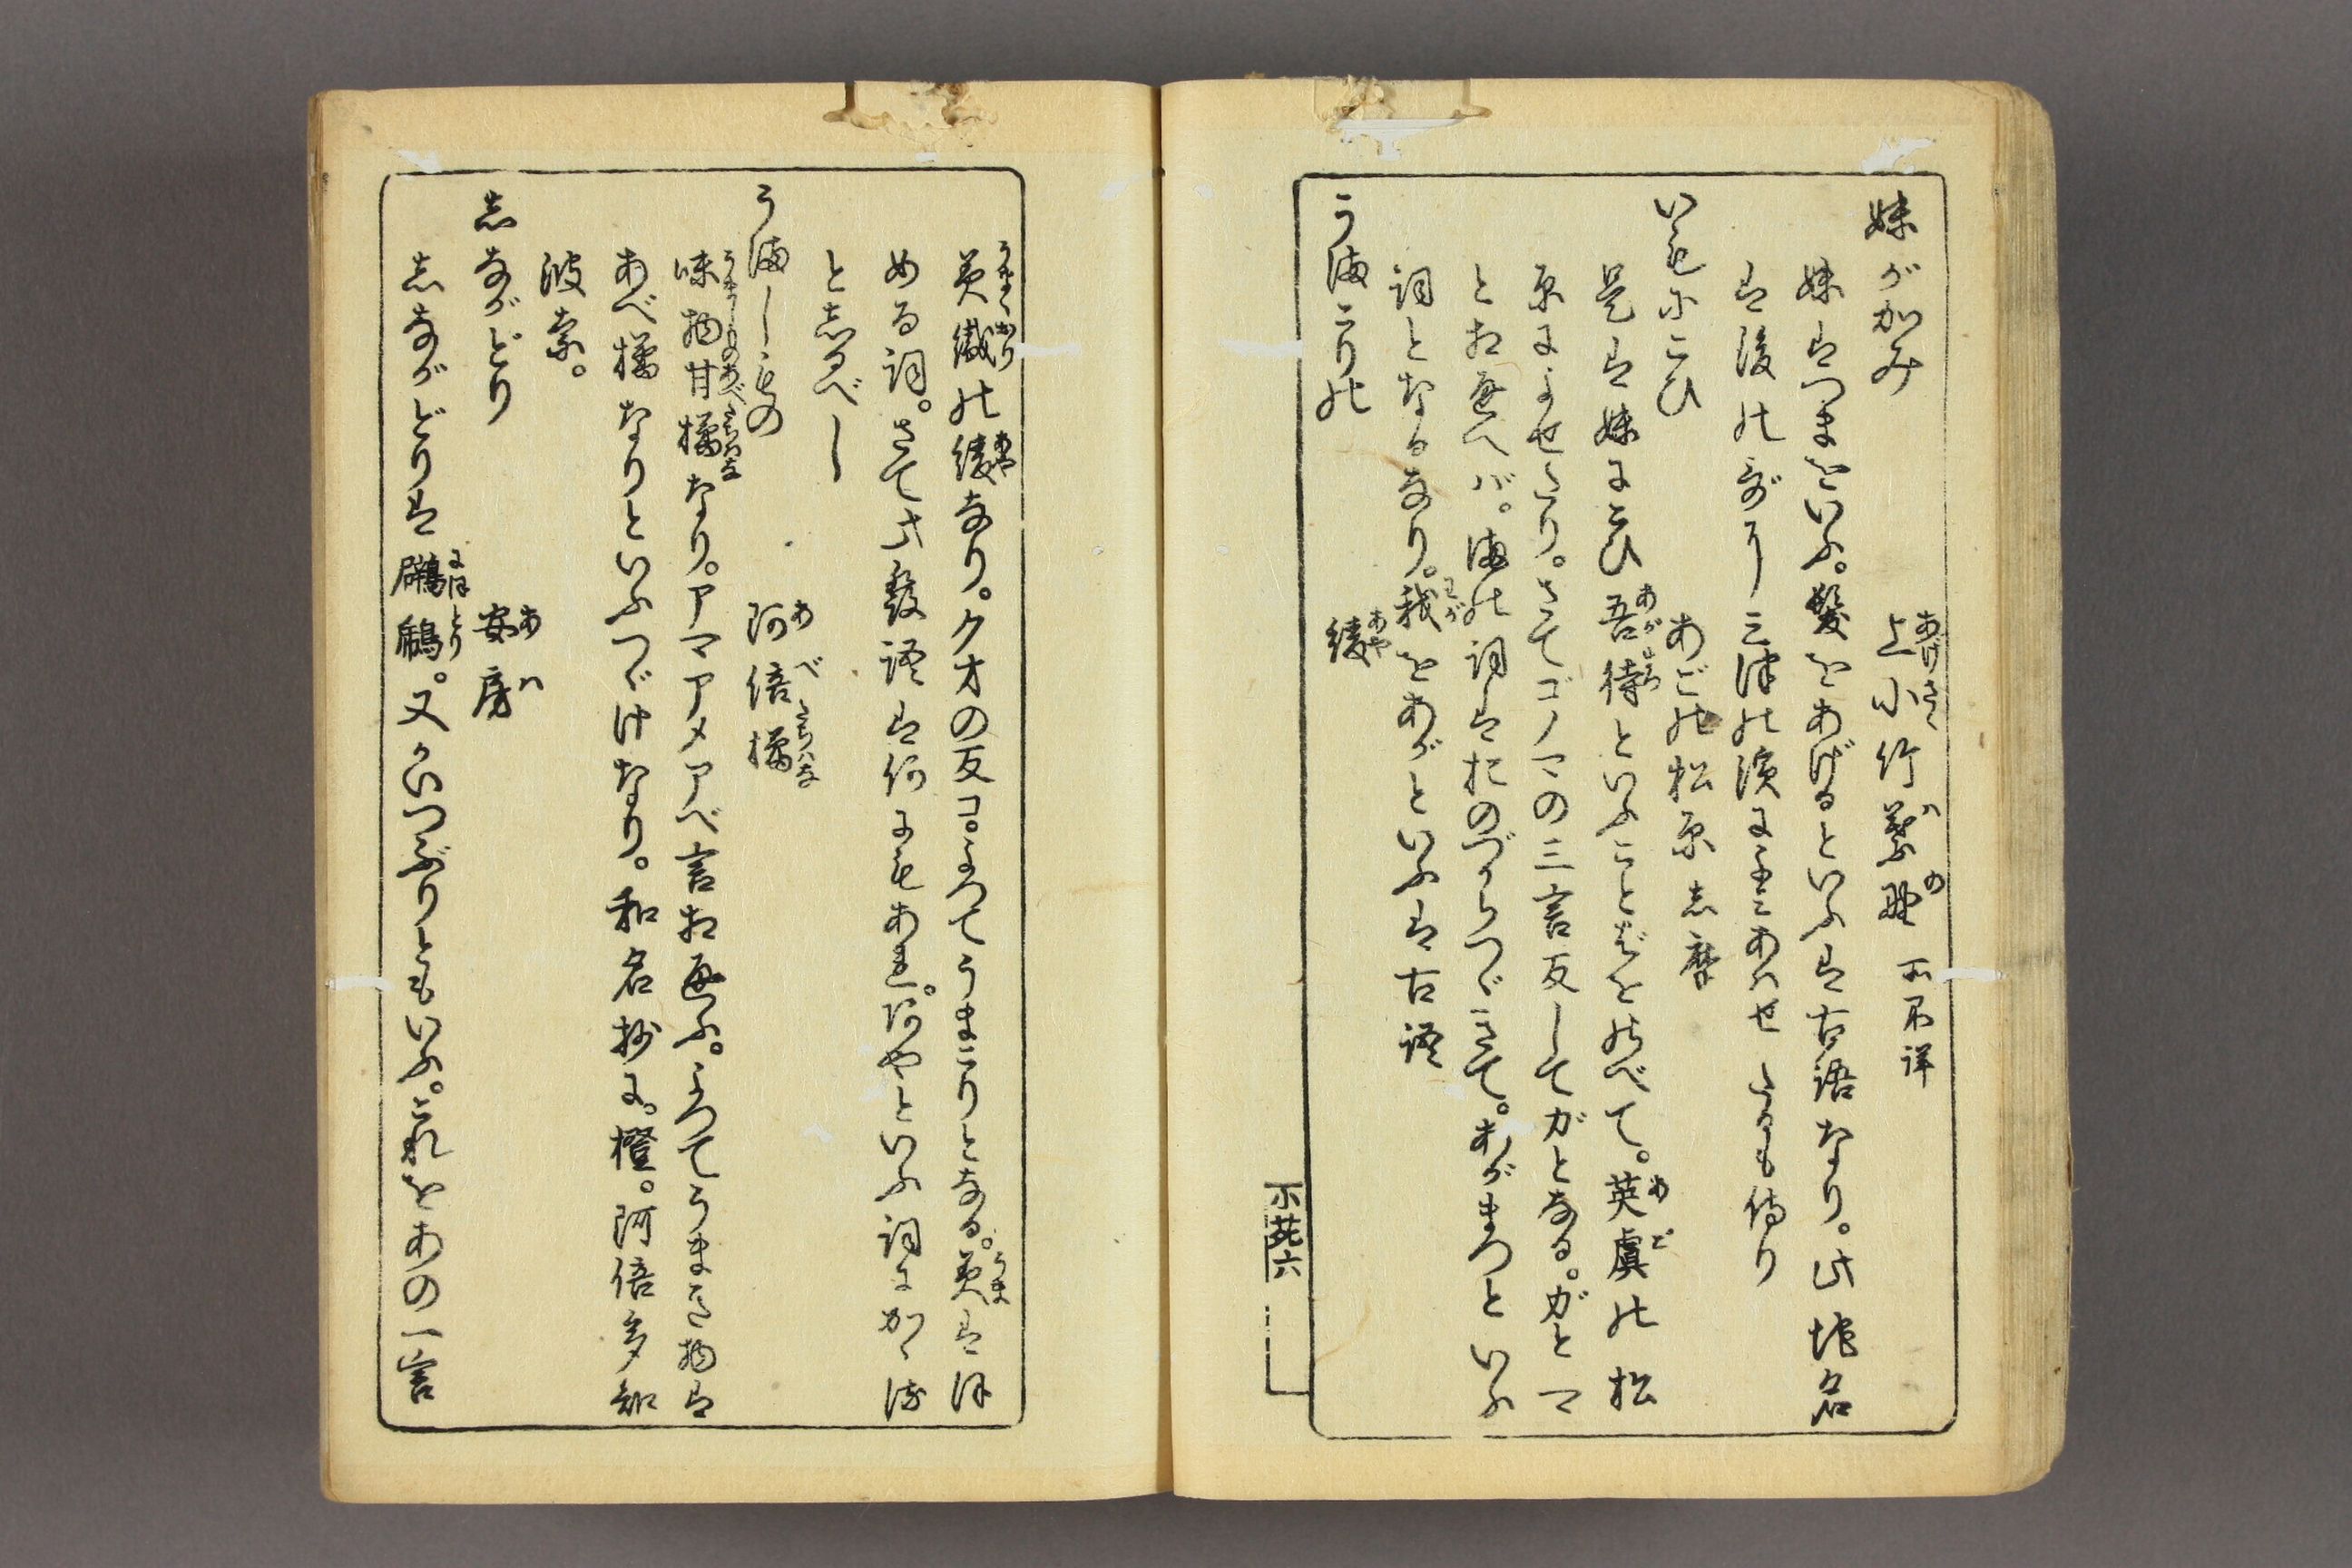 妹が加み　上小竹葉野　所不詳
妹はつまをいふ。髪をあげるといふは古語なり。此地名
は後のかざり三津の濱によみあはせたるも侍り
いもにこひ　あごの松原　志摩
是は妹にこひ吾待といふことばをのべて。英虞の松
原によせたり。さてゴノマの三言反してガとなる。ガとマ
とお通へバ。満の詞はおのづからつゞきて。あがまつといふ
詞となるなり。我をあがといふは古語
う満こりの　綾
美織の綾なり。クオの反コ。よつてうまこりとなる。美はほ
める詞。さて此發語は何にもあれ。阿やといふ詞に加ゝる
と志るべし
う満しもの　阿倍橘
味物甘橘なり。アマアメアベ言お通ふ。よつてうまき物は
あべ橘なりといふつゞけなり。和名抄に。橙。阿倍多知
波奈。
志ながどり　安房
志ながどりは鸊鷉。又かいつぶりともいふ。これをあの一言